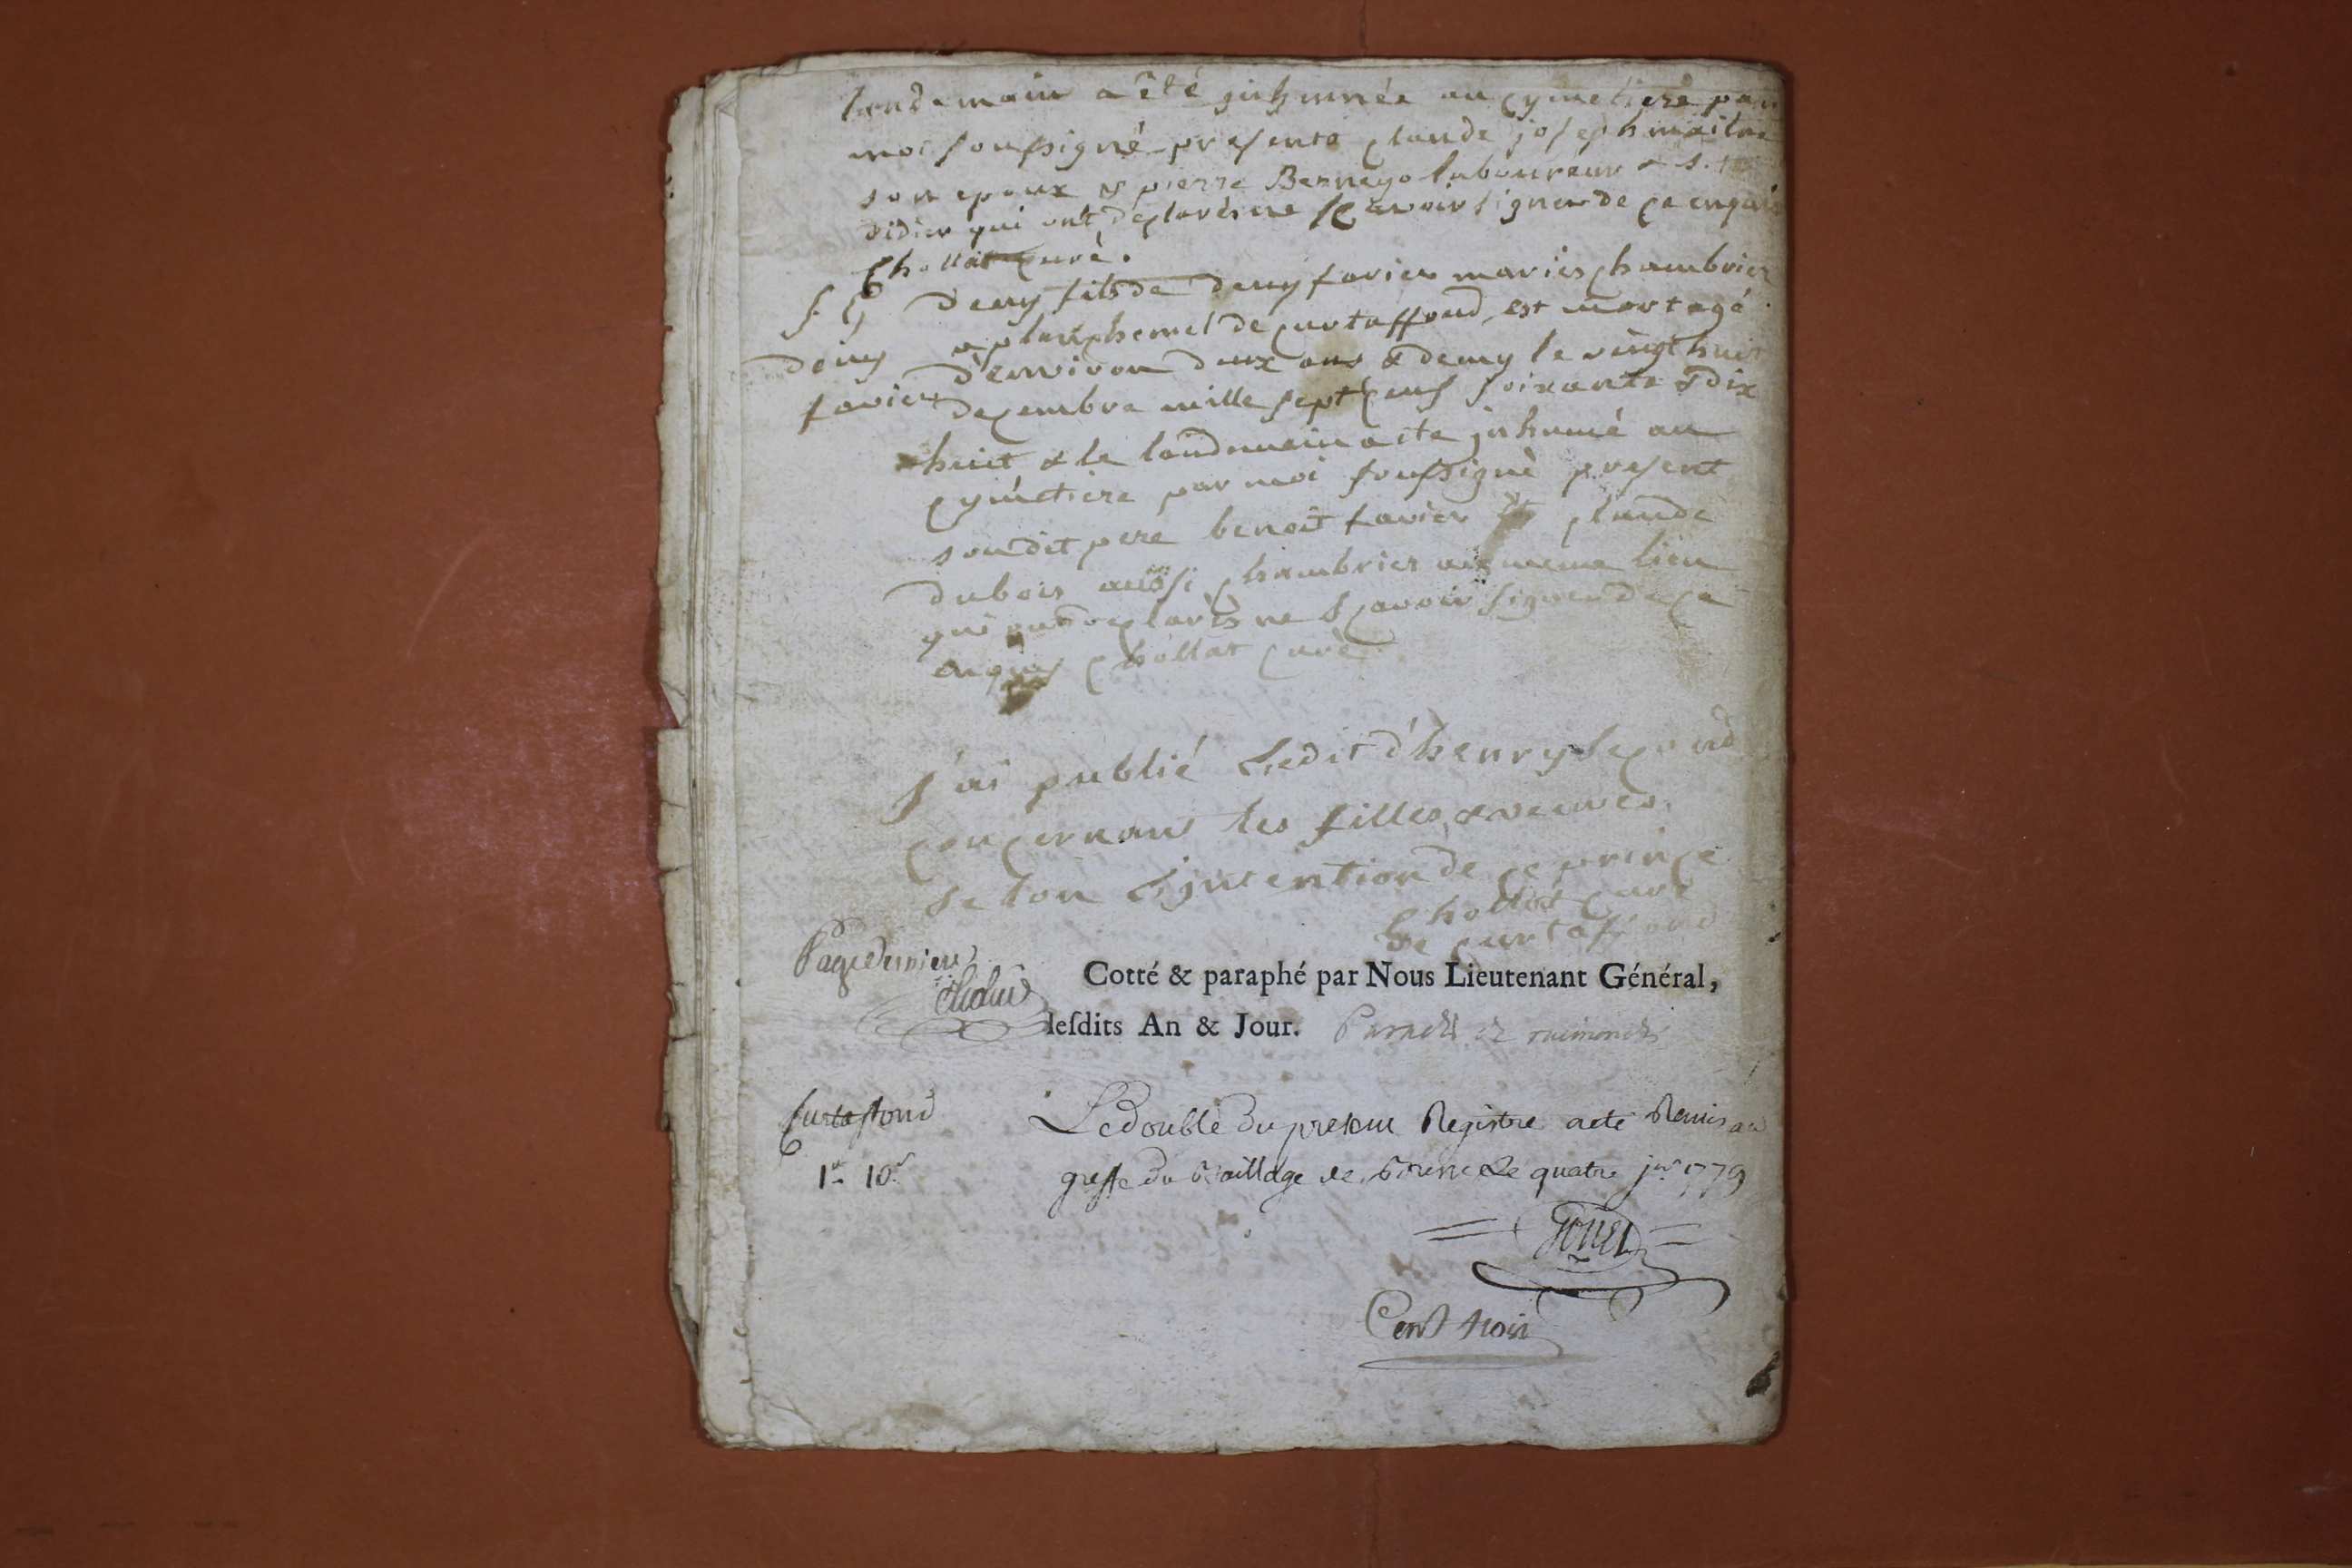 lendemain a été inhumée au cymetiere par
moi soussigné presents claude joseph maitre
son epoux & pierre Berneyo laboureur a st
didier qui ont declarés ne sçavoir signer de ce enquis
Chollat curé.
S. G deny fils de deny favier mariés chambrier
a de curtaffond est mort agé
deny d'environ deux ans & demy le vingt huit
favier decembre mille sept cens soixante & dix
huit & le landemain a ete inhumé au
cymetiere par moi soussigné present
son dit pere benoit favier & claude
dubois aussi chambrier au meme lieu
qui ont declarés ne sçavoir signer de ce
enquis Chollat curé
j'ai publié L'edit d'henry second
concernant les filles & veuves
selon L'intention de ce prince
Chollat curé
de curtaffond
Page derniere
Cotté & paraphé par Nous Lieutenant Général,
lesdits An & Jour.
Curtaffond
Le double du present Registre a eté Remis au
1 10
greffe du Bailliage de Bourg Le quatre jer 1779
Cent trois